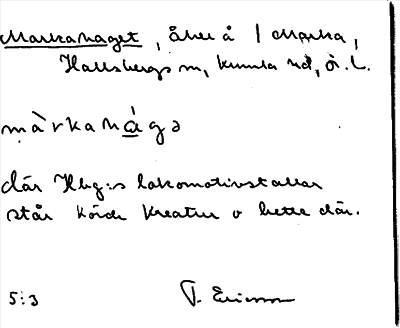 Markahaget, åker å 1 Marka,
Hallsbergs m, Kumla hd, Ö. L.
màrkahá̱gə
där Hbg:s lokomotivstallar
står körde kreatur o bette där.
5:3 T. Ericsson